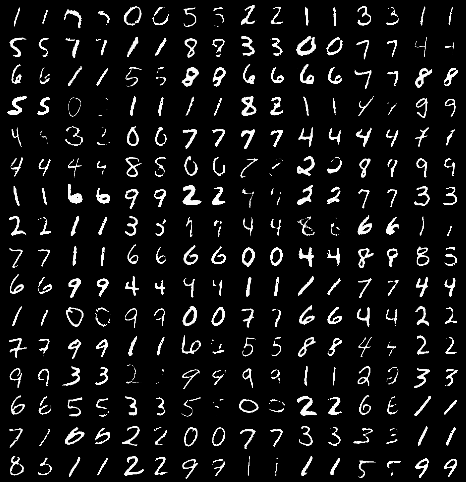 1 1 7 0 0 5 5 2 2 1 1 3 3 1 1
5 5 7 7 1 1 8 8 3 3 0 0 7 7 4
6 6 1 1 5 5 8 8 6 6 6 6 7 7 8 8
5 5 0 1 1 1 1 8 2 1 1 9 9
4 3 0 0 7 7 7 7 4 4 4 4 7 1
4 4 4 4 8 5 0 0 2 8 9 9 9
1 1 6 6 9 9 2 2 2 2 7 7 3 3
2 2 1 1 3 3 9 9 4 4 8 6 6 1
7 7 1 1 6 6 6 6 0 0 4 4 8 8 8 5
6 6 9 9 4 4 4 4 1 1 1 1 7 7 4 4
1 1 0 0 9 9 0 0 7 7 6 6 4 4 2 2
7 7 9 9 1 1 6 5 5 8 8 4 4 2 2
9 9 3 3 2 9 9 9 9 1 1 2 3 3
6 6 5 5 3 3 5 0 0 2 2 6 6 1 1
7 1 6 6 2 2 0 0 7 7 3 3 3 3 1 1
8 5 1 1 2 2 9 9 1 1 1 1 5 5 9 9